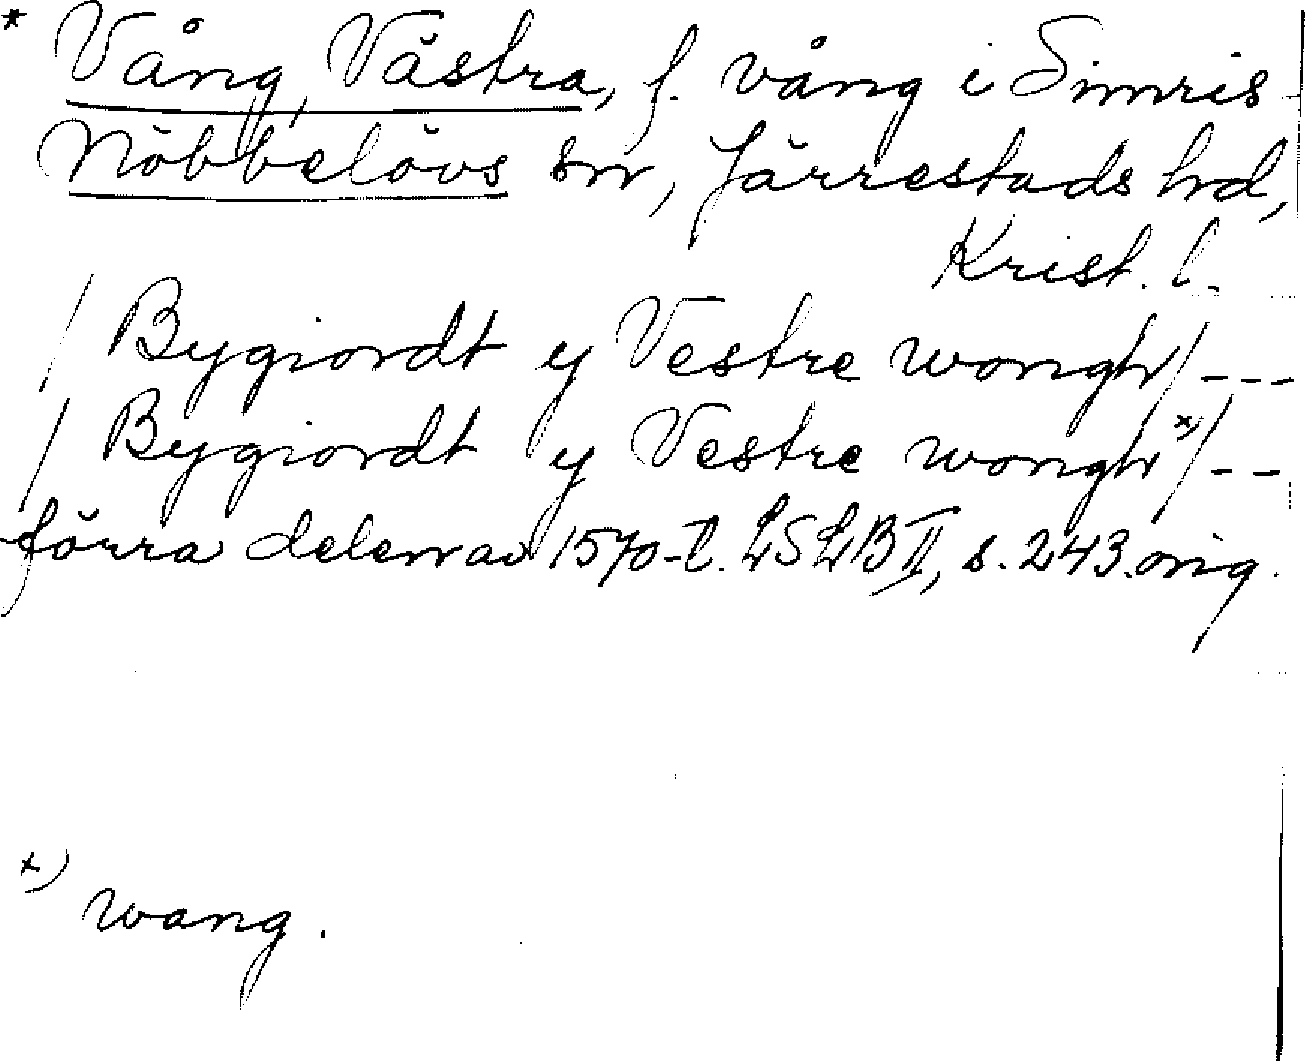 * Vång, Västra, f. vång i Simris
Nöbbelövs sn, Järrestads hd,
Krist. l.
/ Bygiordt y Vestre wongh / ---
/ Bygiordt y Vestre wongh x) / --
förra delen av 1570-t. LSLB II, s. 243. orig.
x) wang.